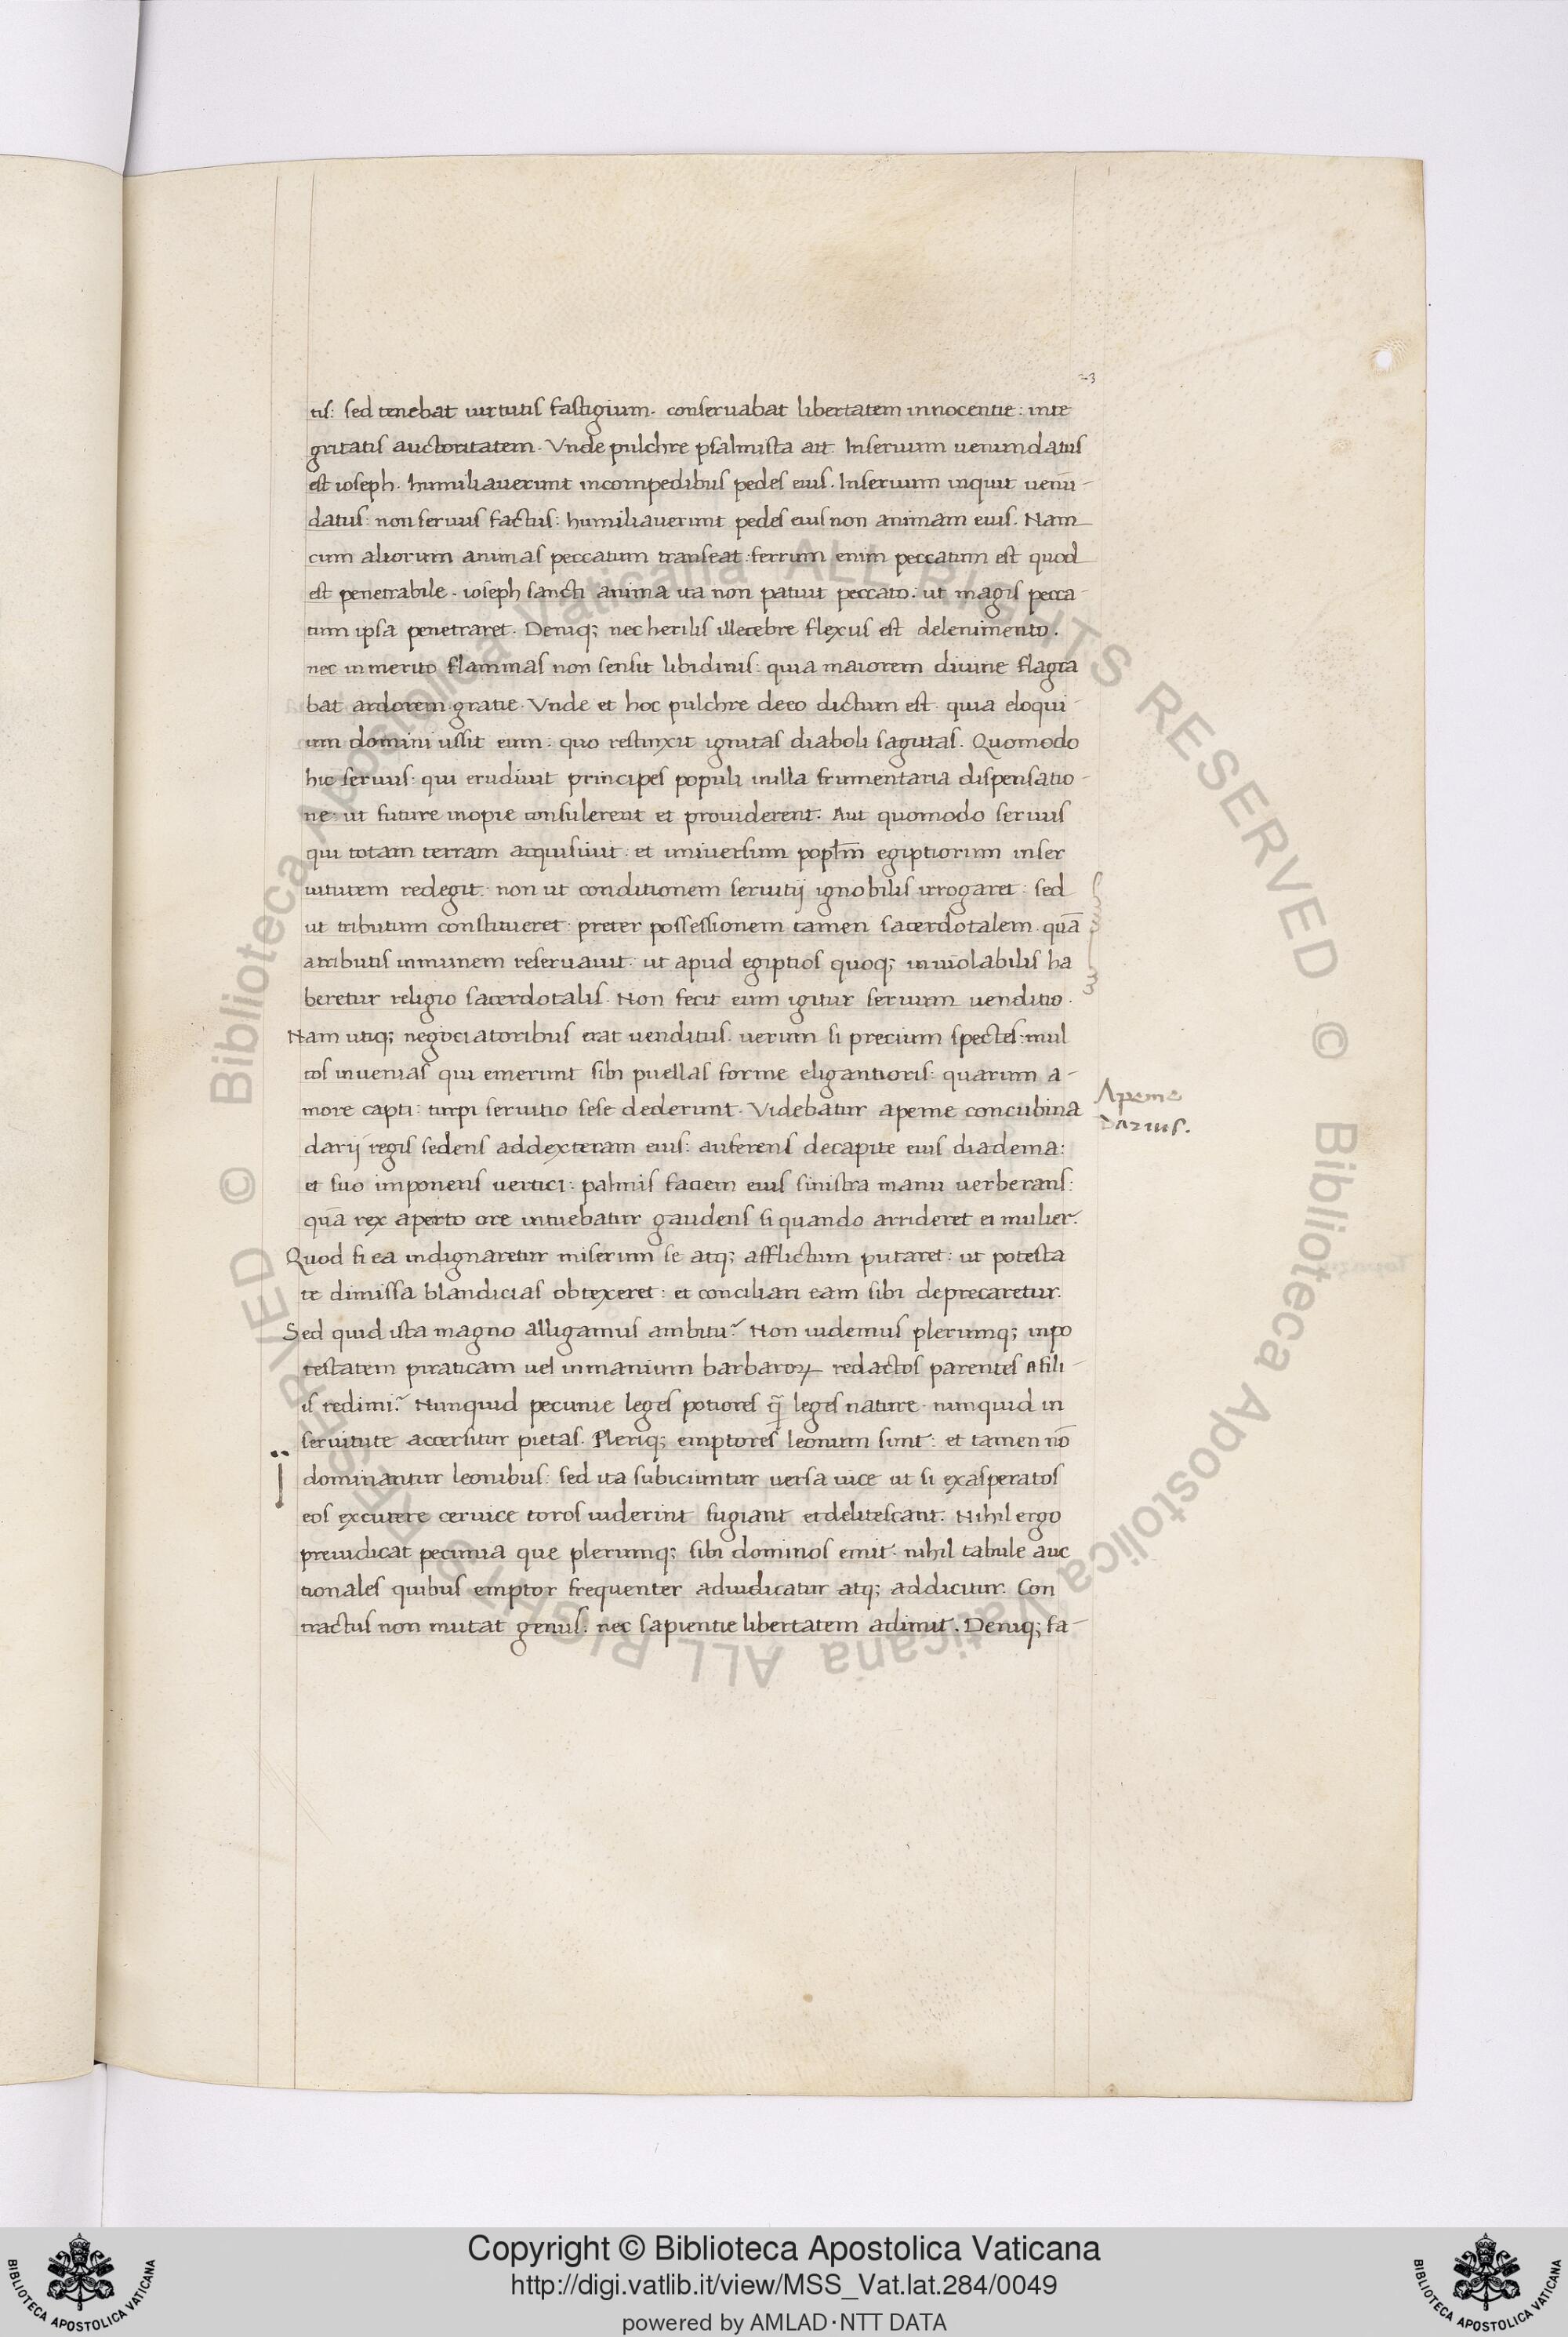 23
tis: sed tenebat uirtutis fastigium. conseruabat libertatem innocentie: inte
gritatis auctoritatem. Vnde pulchre psalmista ait. Inseruum uenundatus
est ioseph. humiliauerunt incompedibus pedes eius. Inseruum inquit uenū-
datus: non seruus factus: humiliauerunt pedes eius non animam eius. Nam
cum aliorum animas peccatum transeat: ferrum enim peccatum est quod
est penetrabile. ioseph sancti anima ita non patuit peccato: ut magis pecca-
tum ipsa penetraret. Deniq; nec herilis illecebre flexus est delenimento.
nec inmerito flammas non sensit libidinis: quia maiorem diuine flagra
bat ardorem gratie. Vnde et hoc pulchre deeo dictum est. quia eloqui-
um domini ussit eum: quo restinxit ignitas diaboli sagittas. Quomodo
hic seruus: qui erudiuit principes populi inilla frumentaria dispensatio-
ne: ut future inopie consulerent et prouiderent. Aut quomodo seruus
qui totam terram acquisiuit. et uniuersum popl̄m egiptiorum inser
uitutem redegit. non ut conditionem seruitij ignobilis irrogaret: sed
ut tributum constitueret: preter possessionem tamen sacerdotalem. quā
atributis inmunem reseruauit: ut apud egiptios quoq; inuiolabilis ha
beretur religio sacerdotalis. Non fecit eum igitur seruum uenditio.
Nam utiq; negociatoribus erat uenditus. uerum si precium spectes: mul
tos inuenias qui emerunt sibi puellas forme eligantioris: quarum a-
more capti: turpi seruitio sese dederunt. Videbatur apeme concubina
darij regis sedens addexteram eius: auferens decapite eius diadema:
et suo imponens uertici: palmis faciem eius sinistra manu uerberans:
quā rex aperto ore intuebatur gaudens si quando arrideret ei mulier.
Quod si ea indignaretur miserum se atq; afflictum putaret: ut potesta
te dimissa blandicias obtexeret: et conciliari eam sibi deprecaretur.
Sed quid ista magno alligamus ambitu? Non uidemus plerumq; inpo
testatem piraticam uel inmanium barbaroꝝ redactos parentes afili-
is redimi? Nunquid pecunie leges potiores q̄ leges nature. nunquid in
seruitute accersitur pietas. Pleriq; emptores leonum sunt: et tamen nō
dominantur leonibus: sed ita subiciuntur uersa uice ut si exasperatos
eos excutere ceruice toros uiderint fugiant et delitescant. Nihil ergo
preiudicat pecunia que plerumq; sibi dominos emit. nihil tabule auc
tionales quibus emptor frequenter adiudicatur atq; addicitur. Con
tractus non mutat genus. nec sapientie libertatem adimit. Deniq; fa-
Apeme
Darius.
© Biblioteca Apostolica Vaticana ALL RIGHTS RESERVED © Biblioteca Apostolica Vaticana ALL RIGHTS RESERVED
Copyright © Biblioteca Apostolica Vaticana
http://digi.vatlib.it/view/MSS_Vat.lat.284/0049
powered by AMLAD·NTT DATA
BIBLIOTECA APOSTOLICA VATICANA
BIBLIOTECA APOSTOLICA VATICANA